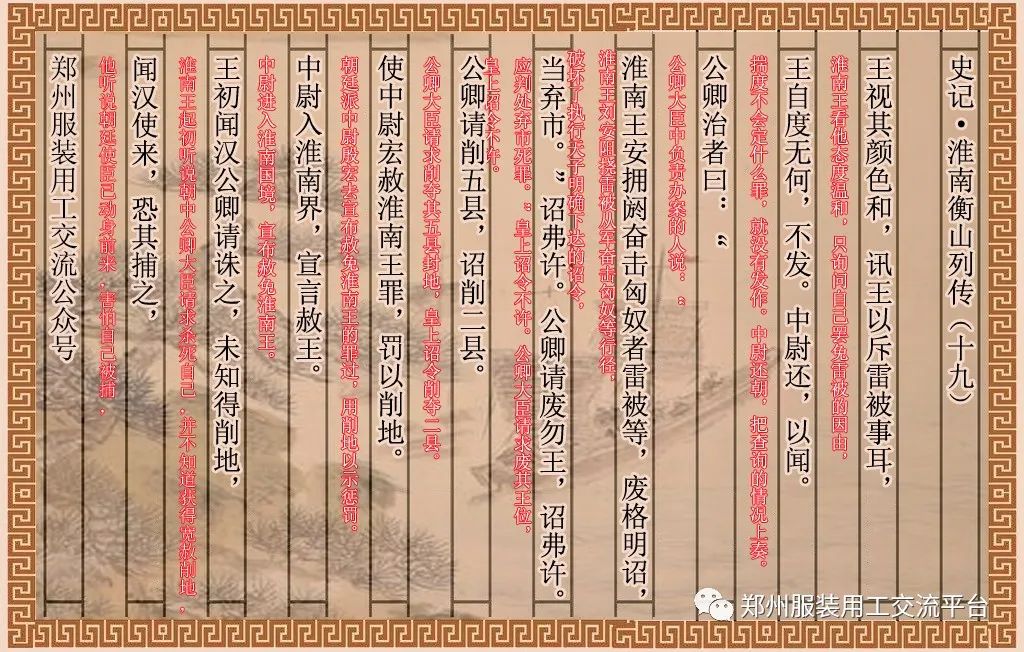 史记·淮南衡山列传（十九）
王视其颜色和，讯王以斥雷被事耳，
淮南王看他态度温和，只询问自己罢免雷被的因由，
王自度无何，不发。中尉还，以闻。
揣度不会定什么罪，就没有发作。中尉还朝，把查询的情况上奏。
公卿治者曰：“
公卿大臣中负责办案的人说：“
淮南王安拥阏奋击匈奴者雷被等，废格明诏，
淮南王刘安阻挠雷被从军奋击匈奴等行径，
破坏了执行天子明确下达的诏令，
当弃市。”诏弗许。公卿请废勿王，诏弗许。
应判处弃市死罪。”皇上诏令不许。公卿大臣请求废其王位，
皇上诏令不许。
公卿请削五县，诏削二县。
公卿大臣请求削夺其五县封地，皇上诏令削夺二县。
使中尉宏赦淮南王罪，罚以削地。
朝廷派中尉殷宏去宣布赦免淮南王的罪过，用削地以示惩罚。
中尉入淮南界，宣言赦王。
中尉进入淮南国境，宣布赦免淮南王。
王初闻汉公卿请诛之，未知得削地，
淮南王起初听说朝中公卿大臣请求杀死自己，并不知道获得宽赦削地，
闻汉使来，恐其捕之，
他听说朝廷使臣已动身前来，害怕自己被捕，
郑州服装用工交流公众号
郑州服装用工交流平台